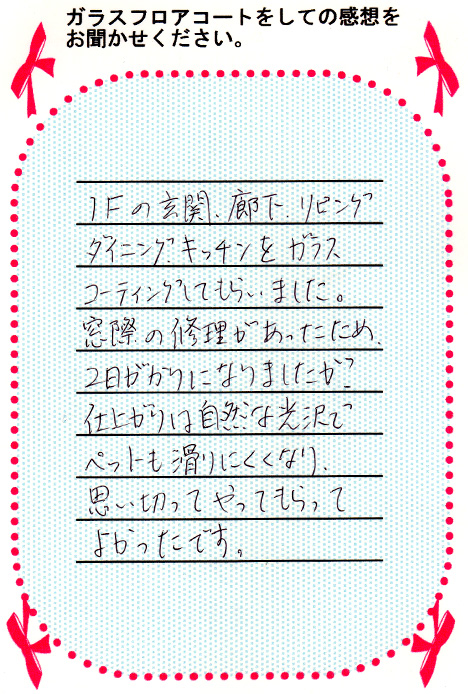 ガラスフロアコートをしての感想を
お聞かせください。
1Fの玄関、廊下、リビング
ダイニング、キッチンをガラス
コーティングしてもらいました。
窓際の修理があったため、
2日がかりになりましたが、
仕上がりは自然な光沢で
ペットも滑りにくくなり、
思い切ってやってもらって
よかったです。